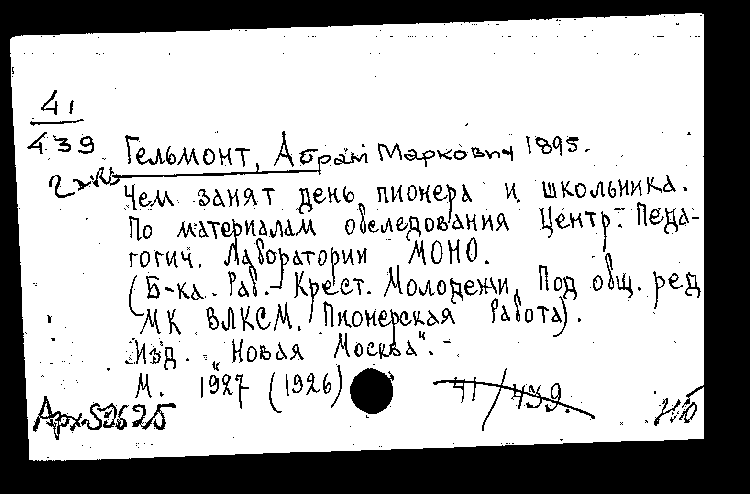 41
439
2 экз
Гельмонт, Абрам Маркович 1895.
Чем занят день пионера и школьника.
По материалам обследования Центр. Педа-
гогич. Лаборатории МОНО.
(Б-ка. Раб.- Крест. Молодежи, Под общ. ред
МК ВЛКСМ. Пионерская Работа).
Изд. „Новая Москва“.-
М. 1927 (1926) 41/439.
Арх